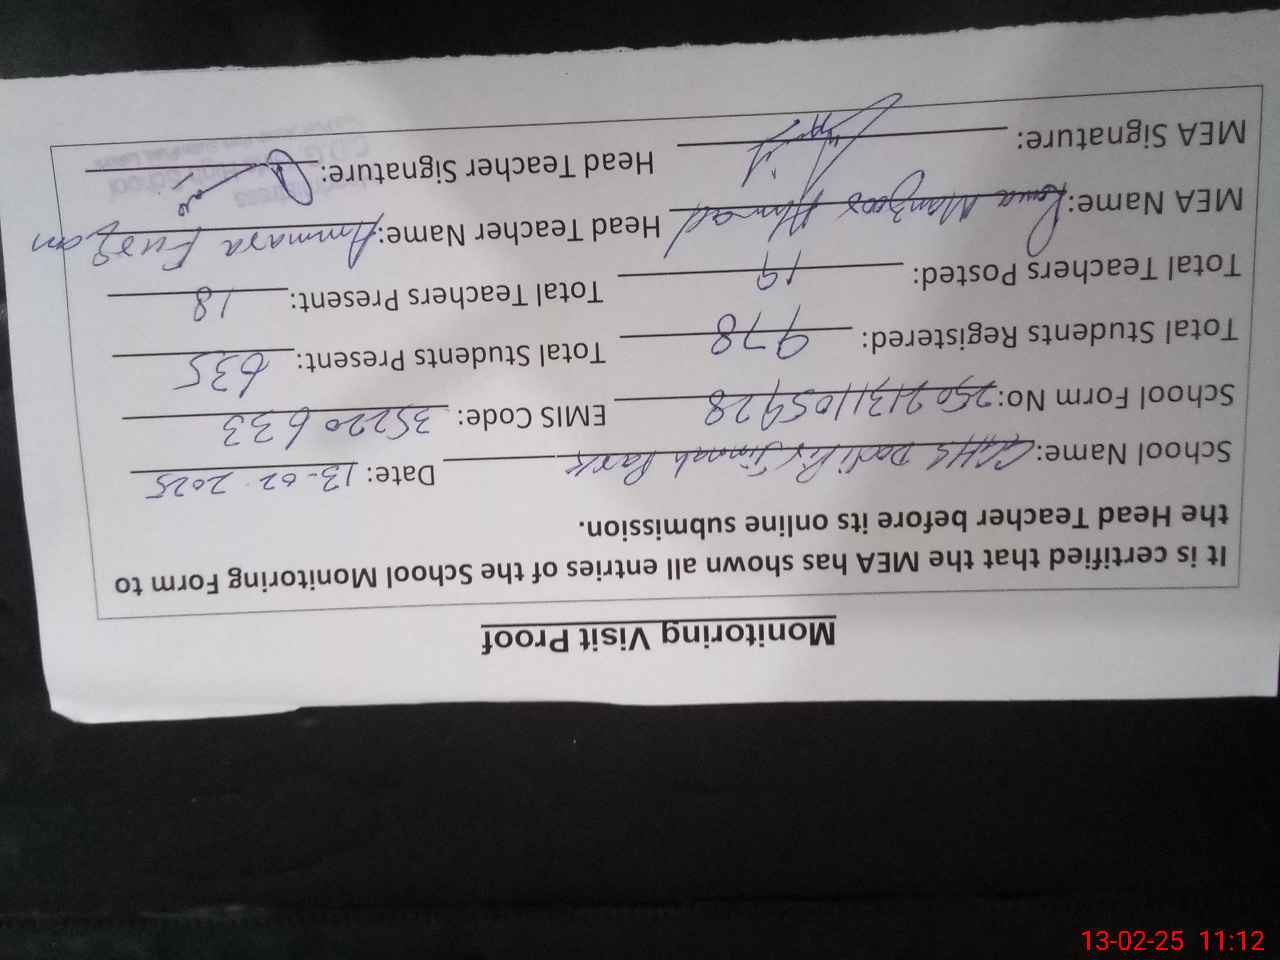 Monitoring Visit Proof
It is certified that the MEA has shown all entries of the School Monitoring Form to
the Head Teacher before its online submission.
School Name: Jinnah Park Date: 13-02-2025
School Form No: EMIS Code: 35220633
Total Students Registered: 978 Total Students Present: 635
Total Teachers Posted: 19 Total Teachers Present: 18
MEA Name: Rana Manzoor Ahmad Head Teacher Name: Ammara
MEA Signature: Head Teacher Signature:
13-02-25 11:12